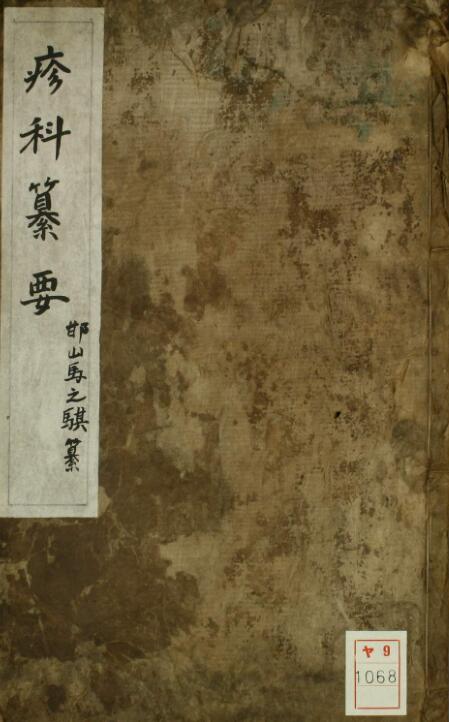 疹科纂要
邯山馬之騏纂
ヤ9
1068